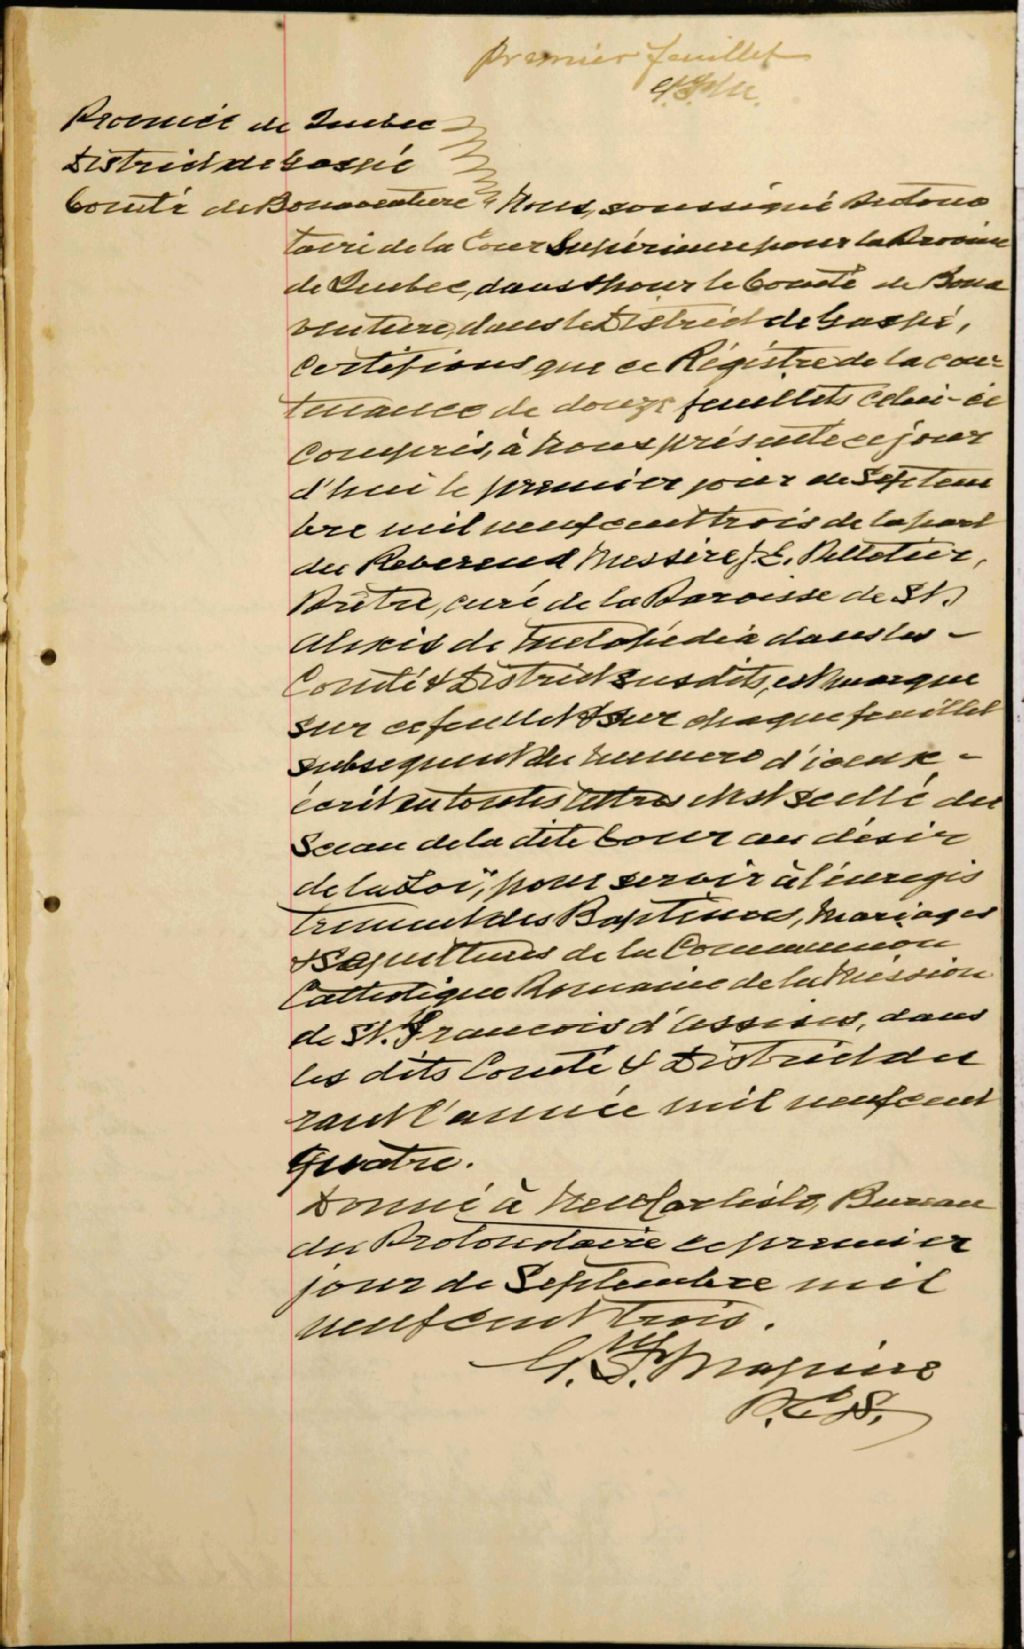 Premier feuillet
Province de Quebec
District de Gaspé
Comté de Bonaventure Nous, soussigné Protono
taire de la Cour Supérieure pour la Province
de Quebec, dans & pour le Comté de Bona
venture, dans le District de Gaspé,
Certifions que ce Régistre de la con-
tenance de douze feuillets celui-ci
compris, à nous présenté ce jour
d'hui le premier jour de Septem
bre mil neuf cent trois de la part
du Reverend Messire J. E. Pelletier,
Prêtre, curé de la Paroisse de St.
Alexis de Metapedia dans les -
Comté & District susdits, est marqué
sur ce feuillet & sur chaque feuillet
subsequent du numero d'iceux -
écrit en toutes lettres et est scellé du
Sceau de la dite Cour au désir
de la Loi, pour servir à l'enregis
trement des Baptêmes, Mariages
& Sepultures de la Communion
Catholique Romaine de la Mission
de St. François d'Assises, dans
les dits Comté & District du
rant l'année mil neuf cent
quatre.
Donné à New Carlisle, Bureau
du Protonotaire ce premier
jour de Septembre mil
neuf cent trois.
P.C.S.